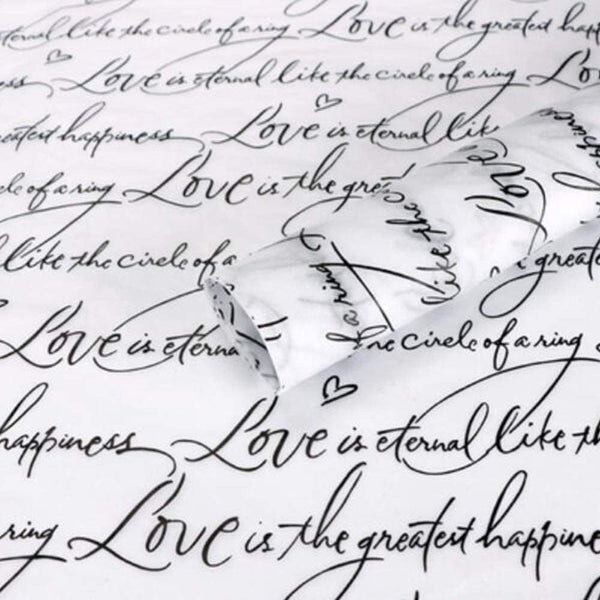 eternal like the circle of a ring Love is the greatest
Love is eternal like the circle of a ring
greatest happiness Love is eternal like
of a ring Love is the
like the circle of a Like the Love
Love is the circle of a ring
happiness Love is eternal like
ring Love is the greatest